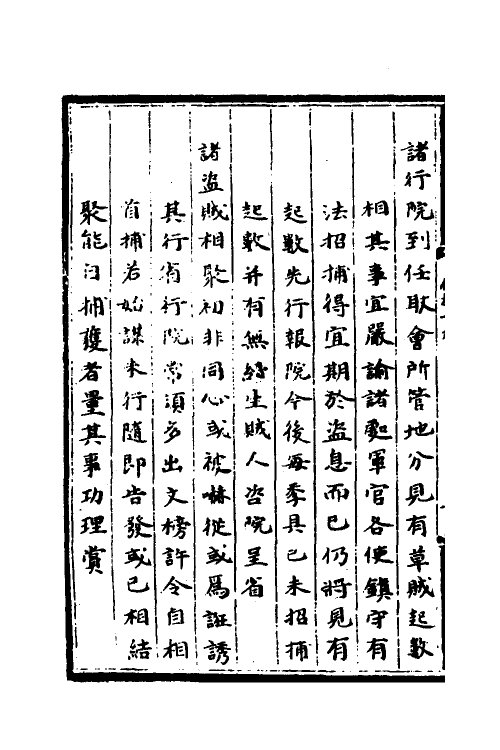 諸行院到任取會所管地分見有草賊起數
相其事宜嚴諭諸處軍官各使鎮守有
法招捕得宜期於盗息而已仍將見有
起數先行報院今後每季具已未招捕
起數并有無經生賊人咨院呈省
諸盗賊相聚初非同心或被嚇從或爲誑誘
其行省行院常須多出文榜許令自相
首捕若始謀未行隨即告發或已相結
聚能自捕獲者量其事功理賞